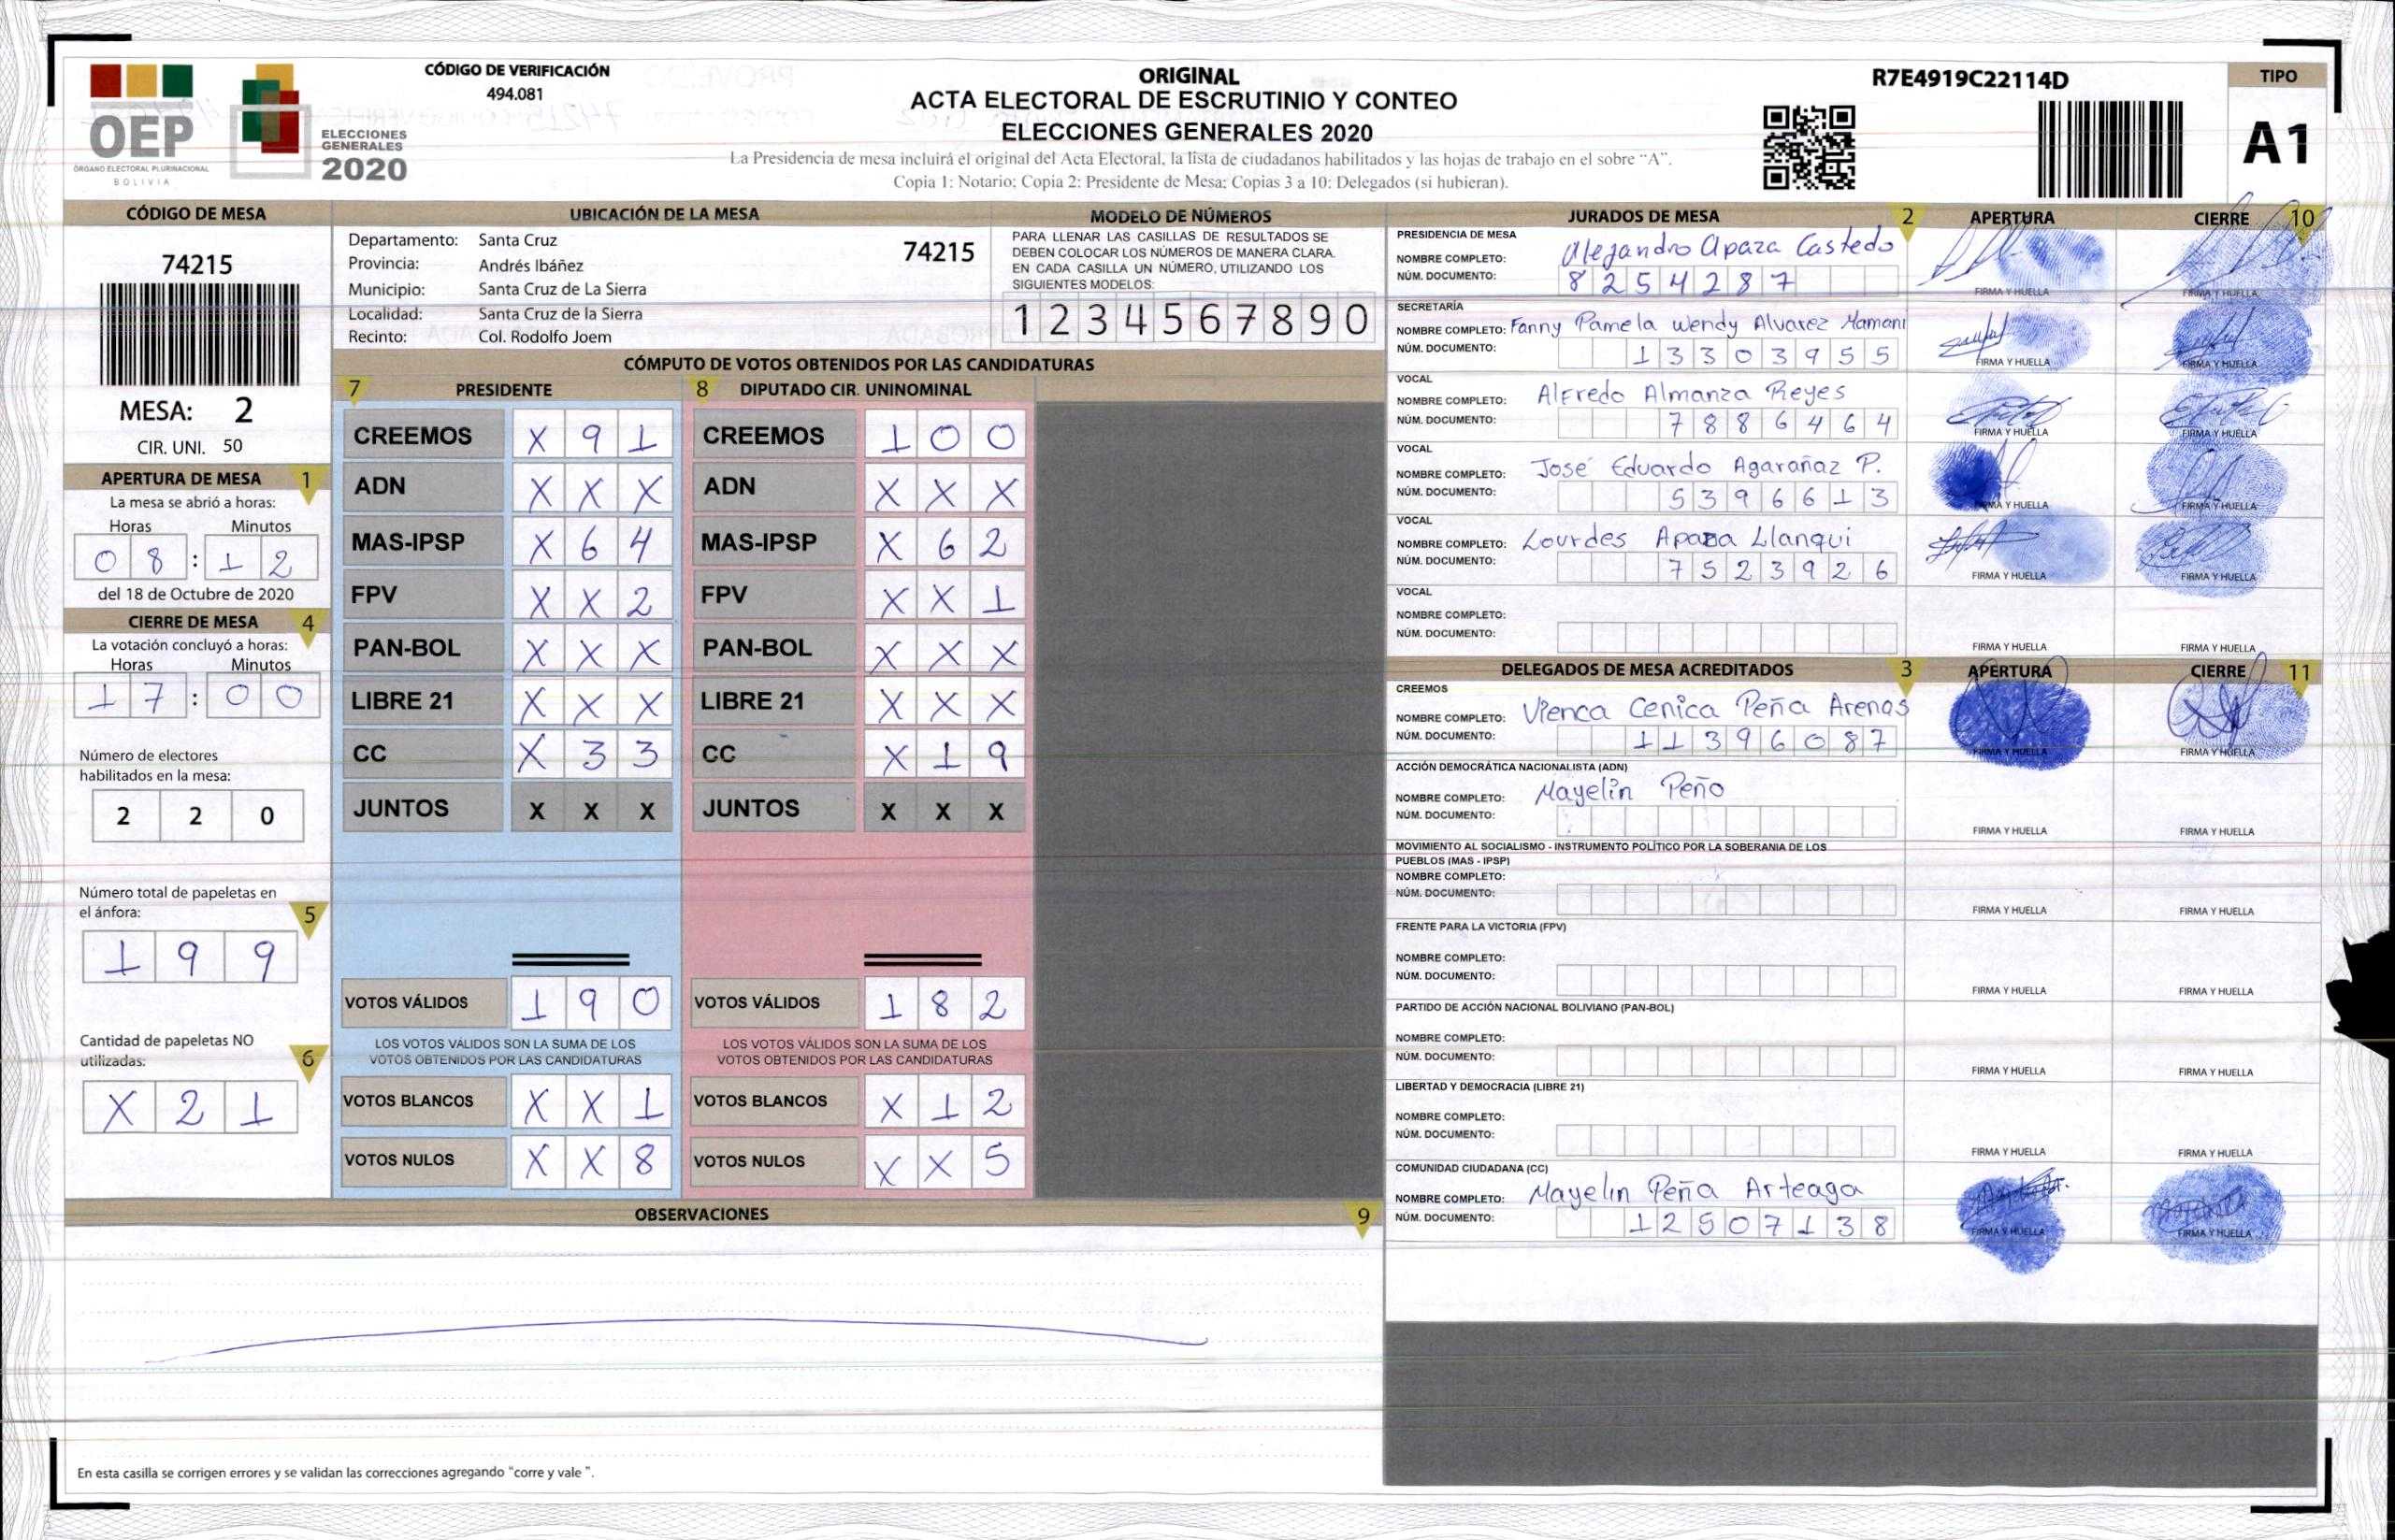 OEP
ÓRGANO ELECTORAL PLURINACIONAL
BOLIVIA
ELECCIONES
GENERALES
2020
CÓDIGO DE VERIFICACIÓN
494.081
ORIGINAL
ACTA ELECTORAL DE ESCRUTINIO Y CONTEO
ELECCIONES GENERALES 2020
La Presidencia de mesa incluirá el original del Acta Electoral, la lista de ciudadanos habilitados y las hojas de trabajo en el sobre "A".
Copia 1: Notario; Copia 2: Presidente de Mesa; Copias 3 a 10: Delegados (si hubieran).
R7E4919C22114D
TIPO
A1
CÓDIGO DE MESA
74215
MESA: 2
CIR. UNI. 50
APERTURA DE MESA 1
La mesa se abrió a horas:
Horas Minutos
0 8 : 1 2
del 18 de Octubre de 2020
CIERRE DE MESA 4
La votación concluyó a horas:
Horas Minutos
1 7 : 0 0
Número de electores
habilitados en la mesa:
2 2 0
Número total de papeletas en
el ánfora: 5
1 9 9
Cantidad de papeletas NO
utilizadas: 6
X 2 1
UBICACIÓN DE LA MESA
Departamento: Santa Cruz 74215
Provincia: Andrés Ibáñez
Municipio: Santa Cruz de La Sierra
Localidad: Santa Cruz de la Sierra
Recinto: Col. Rodolfo Joem
MODELO DE NÚMEROS
PARA LLENAR LAS CASILLAS DE RESULTADOS SE
DEBEN COLOCAR LOS NÚMEROS DE MANERA CLARA.
EN CADA CASILLA UN NÚMERO, UTILIZANDO LOS
SIGUIENTES MODELOS:
1 2 3 4 5 6 7 8 9 0
CÓMPUTO DE VOTOS OBTENIDOS POR LAS CANDIDATURAS
7 PRESIDENTE 8 DIPUTADO CIR. UNINOMINAL
CREEMOS X 9 1 CREEMOS 1 0 0
ADN X X X ADN X X X
MAS-IPSP X 6 4 MAS-IPSP X 6 2
FPV X X 2 FPV X X 1
PAN-BOL X X X PAN-BOL X X X
LIBRE 21 X X X LIBRE 21 X X X
CC X 3 3 CC X 1 9
JUNTOS X X X JUNTOS X X X
VOTOS VÁLIDOS 1 9 0 VOTOS VÁLIDOS 1 8 2
LOS VOTOS VÁLIDOS SON LA SUMA DE LOS LOS VOTOS VÁLIDOS SON LA SUMA DE LOS
VOTOS OBTENIDOS POR LAS CANDIDATURAS VOTOS OBTENIDOS POR LAS CANDIDATURAS
VOTOS BLANCOS X X 1 VOTOS BLANCOS X 1 2
VOTOS NULOS X X 8 VOTOS NULOS X X 5
OBSERVACIONES 9
En esta casilla se corrigen errores y se validan las correcciones agregando "corre y vale ".
JURADOS DE MESA 2 APERTURA CIERRE 10
PRESIDENCIA DE MESA
NOMBRE COMPLETO: Alejandro Apaza Castedo
NÚM. DOCUMENTO: 8 2 5 4 2 8 7
FIRMA Y HUELLA FIRMA Y HUELLA
SECRETARÍA
NOMBRE COMPLETO: Fanny Pamela Wendy Alvarez Mamani
NÚM. DOCUMENTO: 1 3 3 0 3 9 5 5
FIRMA Y HUELLA FIRMA Y HUELLA
VOCAL
NOMBRE COMPLETO: Alfredo Almanza Reyes
NÚM. DOCUMENTO: 7 8 8 6 4 6 4
FIRMA Y HUELLA FIRMA Y HUELLA
VOCAL
NOMBRE COMPLETO: José Eduardo Agarañaz P.
NÚM. DOCUMENTO: 5 3 9 6 6 1 3
FIRMA Y HUELLA FIRMA Y HUELLA
VOCAL
NOMBRE COMPLETO: Lourdes Apaza Llanqui
NÚM. DOCUMENTO: 7 5 2 3 9 2 6
FIRMA Y HUELLA FIRMA Y HUELLA
VOCAL
NOMBRE COMPLETO:
NÚM. DOCUMENTO:
FIRMA Y HUELLA FIRMA Y HUELLA
DELEGADOS DE MESA ACREDITADOS 3 APERTURA CIERRE 11
CREEMOS
NOMBRE COMPLETO: Vienca Cenica Peña Arenas
NÚM. DOCUMENTO: 1 1 3 9 6 0 8 7
FIRMA Y HUELLA FIRMA Y HUELLA
ACCIÓN DEMOCRÁTICA NACIONALISTA (ADN)
NOMBRE COMPLETO: Mayelin Peño
NÚM. DOCUMENTO:
FIRMA Y HUELLA FIRMA Y HUELLA
MOVIMIENTO AL SOCIALISMO - INSTRUMENTO POLÍTICO POR LA SOBERANIA DE LOS
PUEBLOS (MAS - IPSP)
NOMBRE COMPLETO:
NÚM. DOCUMENTO:
FIRMA Y HUELLA FIRMA Y HUELLA
FRENTE PARA LA VICTORIA (FPV)
NOMBRE COMPLETO:
NÚM. DOCUMENTO:
FIRMA Y HUELLA FIRMA Y HUELLA
PARTIDO DE ACCIÓN NACIONAL BOLIVIANO (PAN-BOL)
NOMBRE COMPLETO:
NÚM. DOCUMENTO:
FIRMA Y HUELLA FIRMA Y HUELLA
LIBERTAD Y DEMOCRACIA (LIBRE 21)
NOMBRE COMPLETO:
NÚM. DOCUMENTO:
FIRMA Y HUELLA FIRMA Y HUELLA
COMUNIDAD CIUDADANA (CC)
NOMBRE COMPLETO: Mayelin Peña Arteaga
NÚM. DOCUMENTO: 1 2 5 0 7 1 3 8
FIRMA Y HUELLA FIRMA Y HUELLA